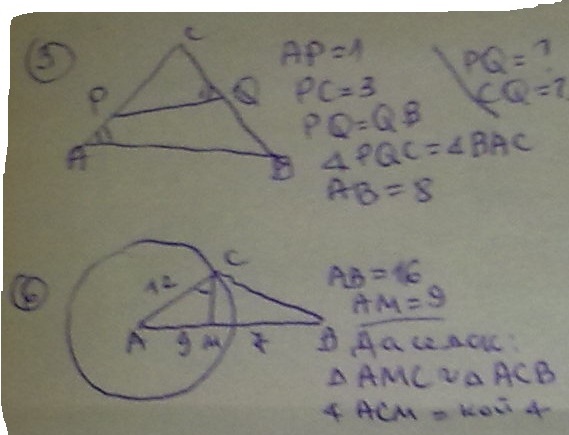 5
C
P
Q
A
B
AP=1
PC=3
PQ=QB
∠PQC=∠BAC
AB=8
PQ=?
CQ=?
6
C
12
A 9 M 7 B
AB=16
AM=9
Да се док:
△AMC ~ △ACB
∠ACM = кой ∠